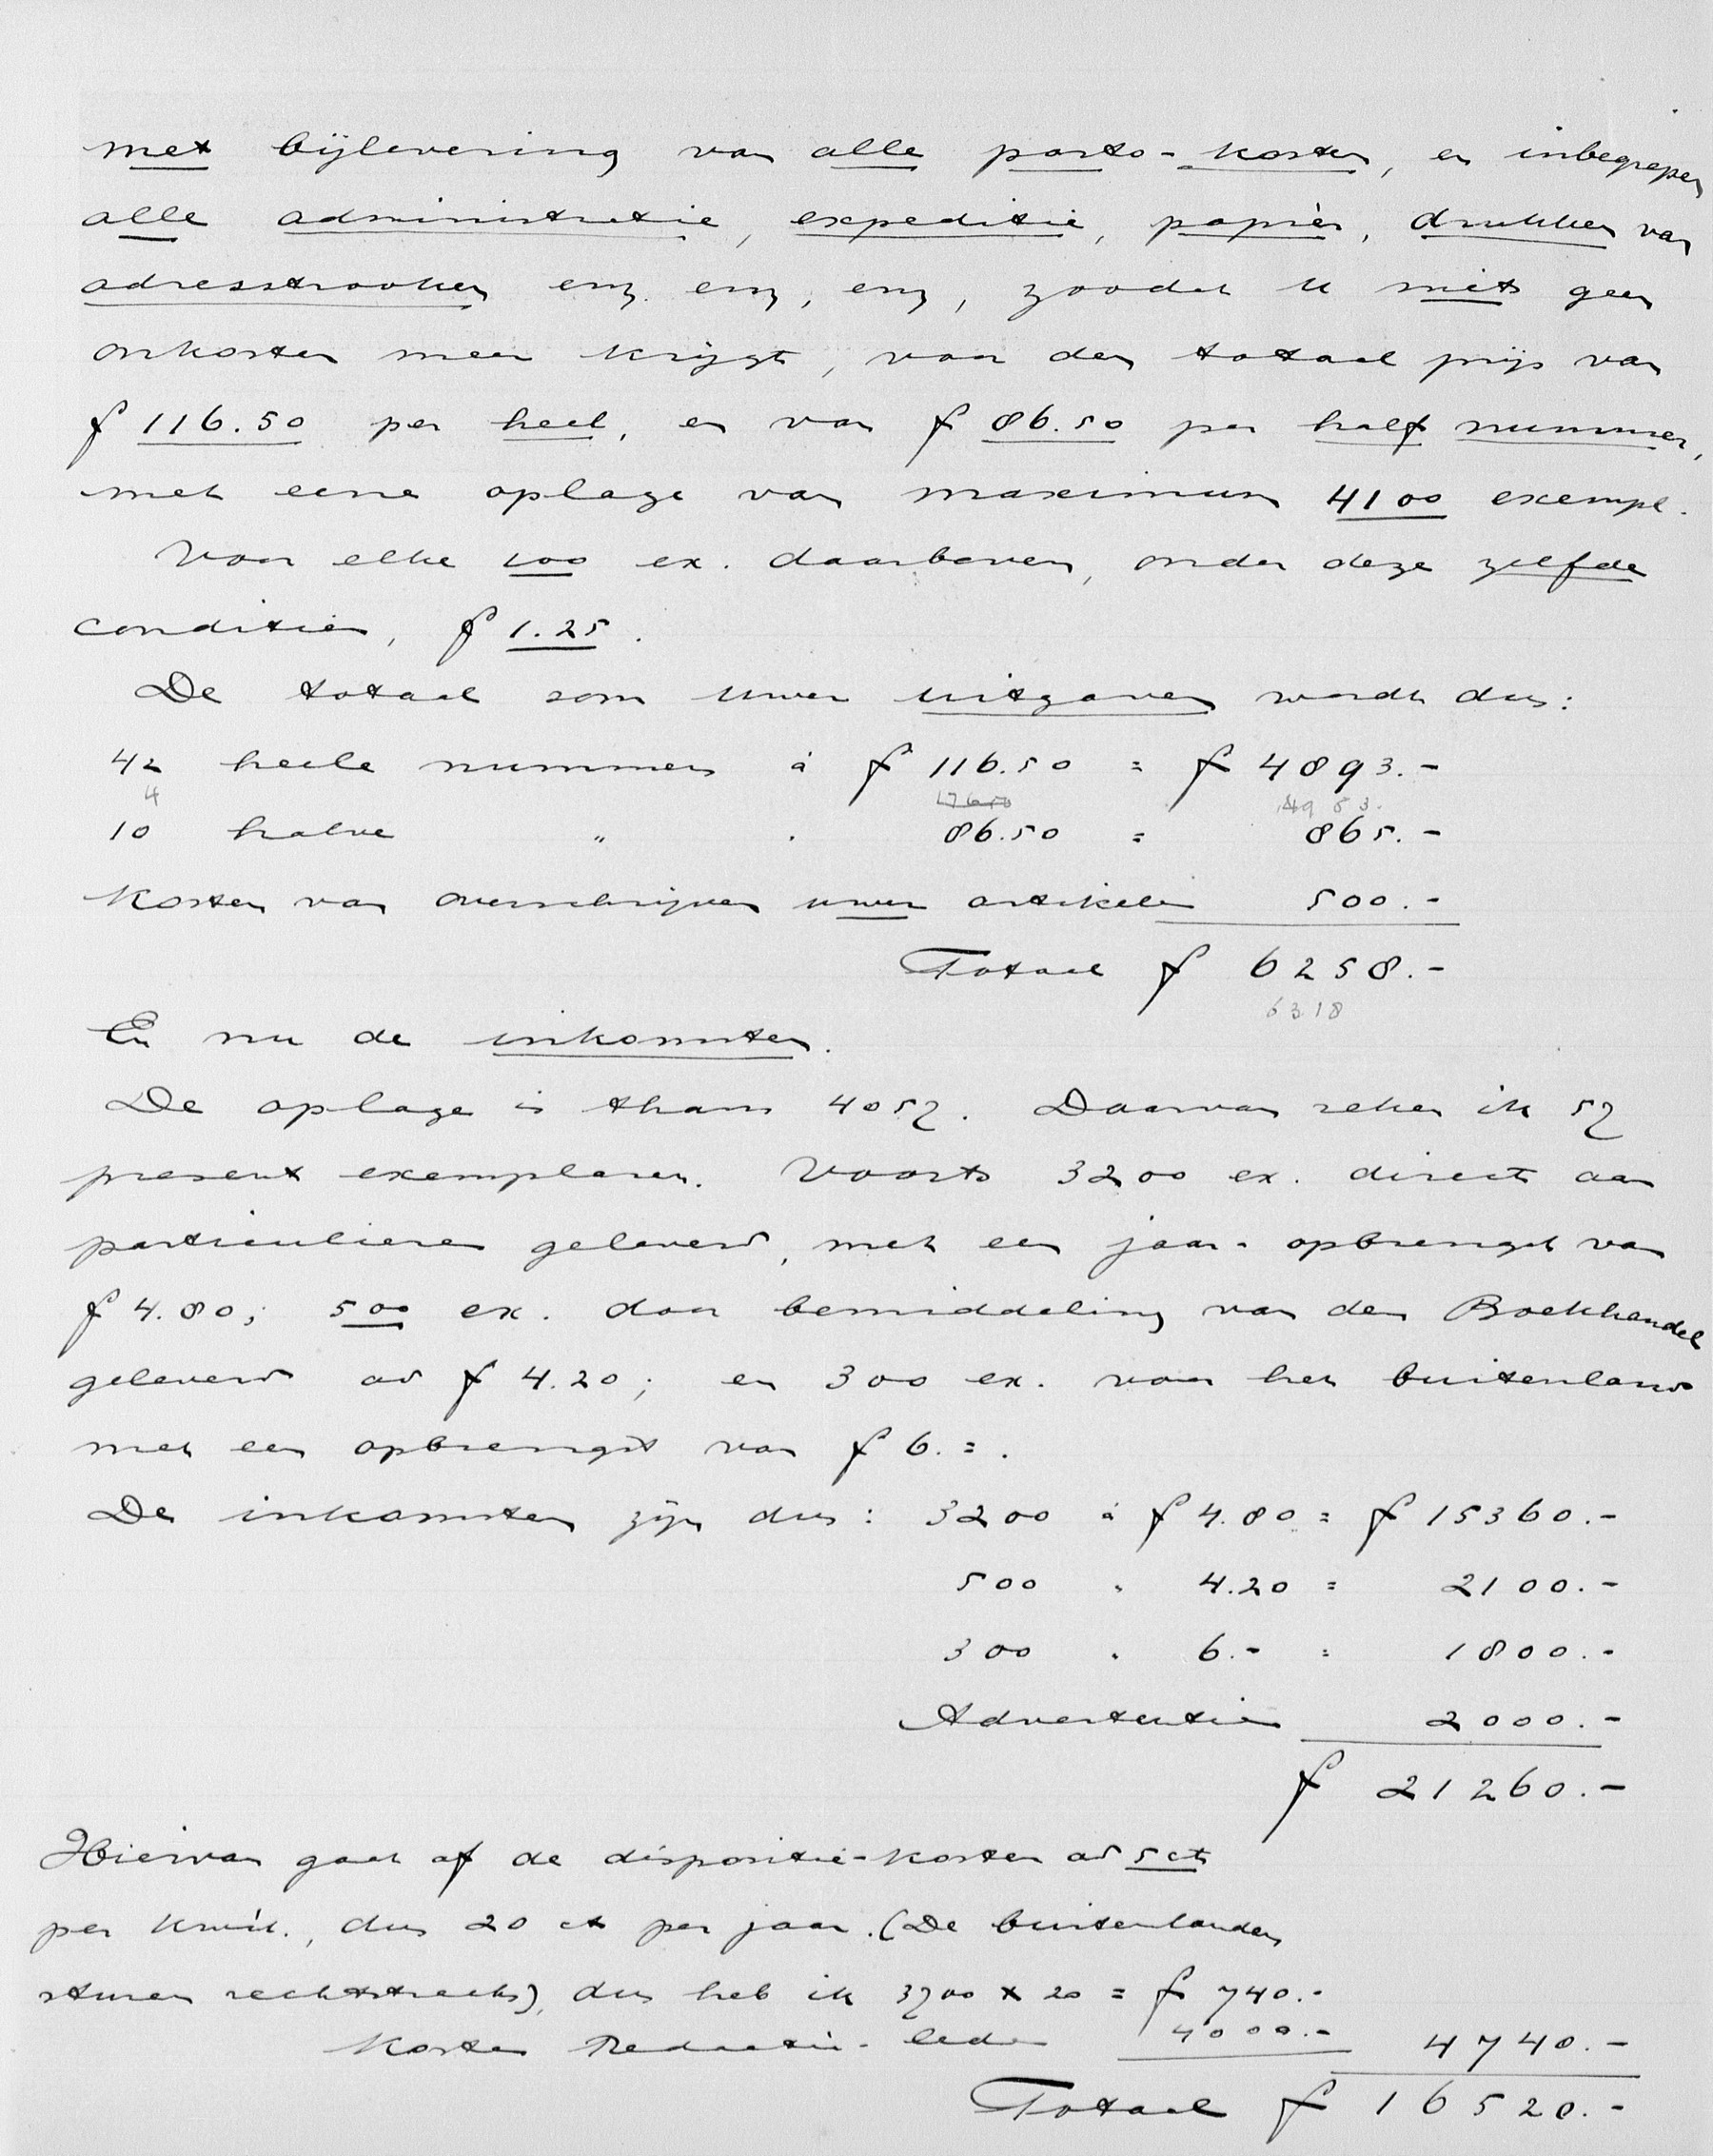 met bijlevering van alle porto-kosten, en inbegrepen
alle administratie, expeditie, papier, drukken van
adresstrooken enz. enz, enz, zoodat U niets geen
onkosten meer krijgt, voor den totaal prijs van
f 116.50 per heel, en van f 86.50 per half nummer,
met eene oplage van maximum 4100 exempl.
Voor elke 100 ex. daarboven, onder deze zelfde
conditien, f 1.25.
De totaal som uwer uitgaven wordt dus:
42 heele nummers à f 116.50 = f 4893.-
4 4953.
10 halve " . 86.50 = 865.-
Kosten van overschrijven uwer artikelen 500.-
Totaal f 6258.-
6318
En nu de inkomsten.
De oplage is thans 4057. Daarvan reken ik 57
present exemplaren. Voorts 3200 ex. direct aan
particulieren geleverd, met een jaar-opbrengst van
f 4.80; 500 ex. door bemiddeling van den Boekhandel
geleverd ad f 4.20; en 300 ex. voor het buitenland
met een opbrengst van f 6.=.
De inkomsten zijn dus: 3200 à f 4.80 = f 15360.-
500 " 4.20 = 2100.-
300 " 6.- = 1800.-
Advertentien 2000.-
f 21260.-
Hiervan gaat af de dispositie-kosten ad 5 ct
per kwit., dus 20 ct per jaar. (De buitenlanders
sturen rechtstreeks), dus heb ik 3700 x 20 = f 740.-
Kosten Redactie-leden 4000.- 4740.-
Totaal f 16520.-